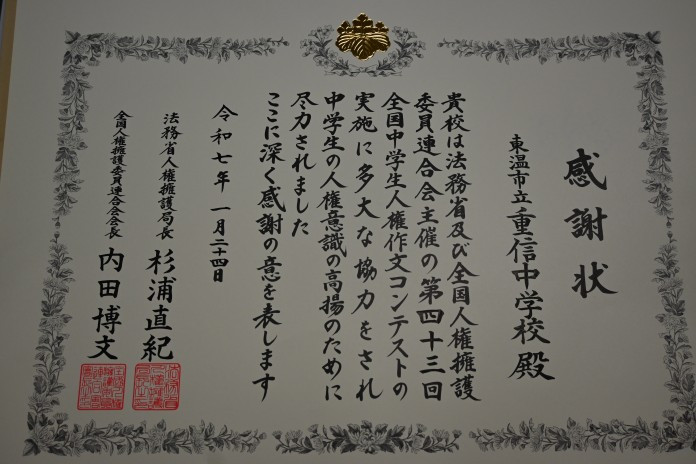 感謝状
東温市立重信中学校 殿
貴校は法務省及び全国人権擁護
委員連合会主催の第四十三回
全国中学生人権作文コンテストの
実施に多大な協力をされ
中学生の人権意識の高揚のために
尽力されました
ここに深く感謝の意を表します
令和七年 一月二十四日
法務省人権擁護局長 杉浦直紀
全国人権擁護委員連合会会長 内田博文